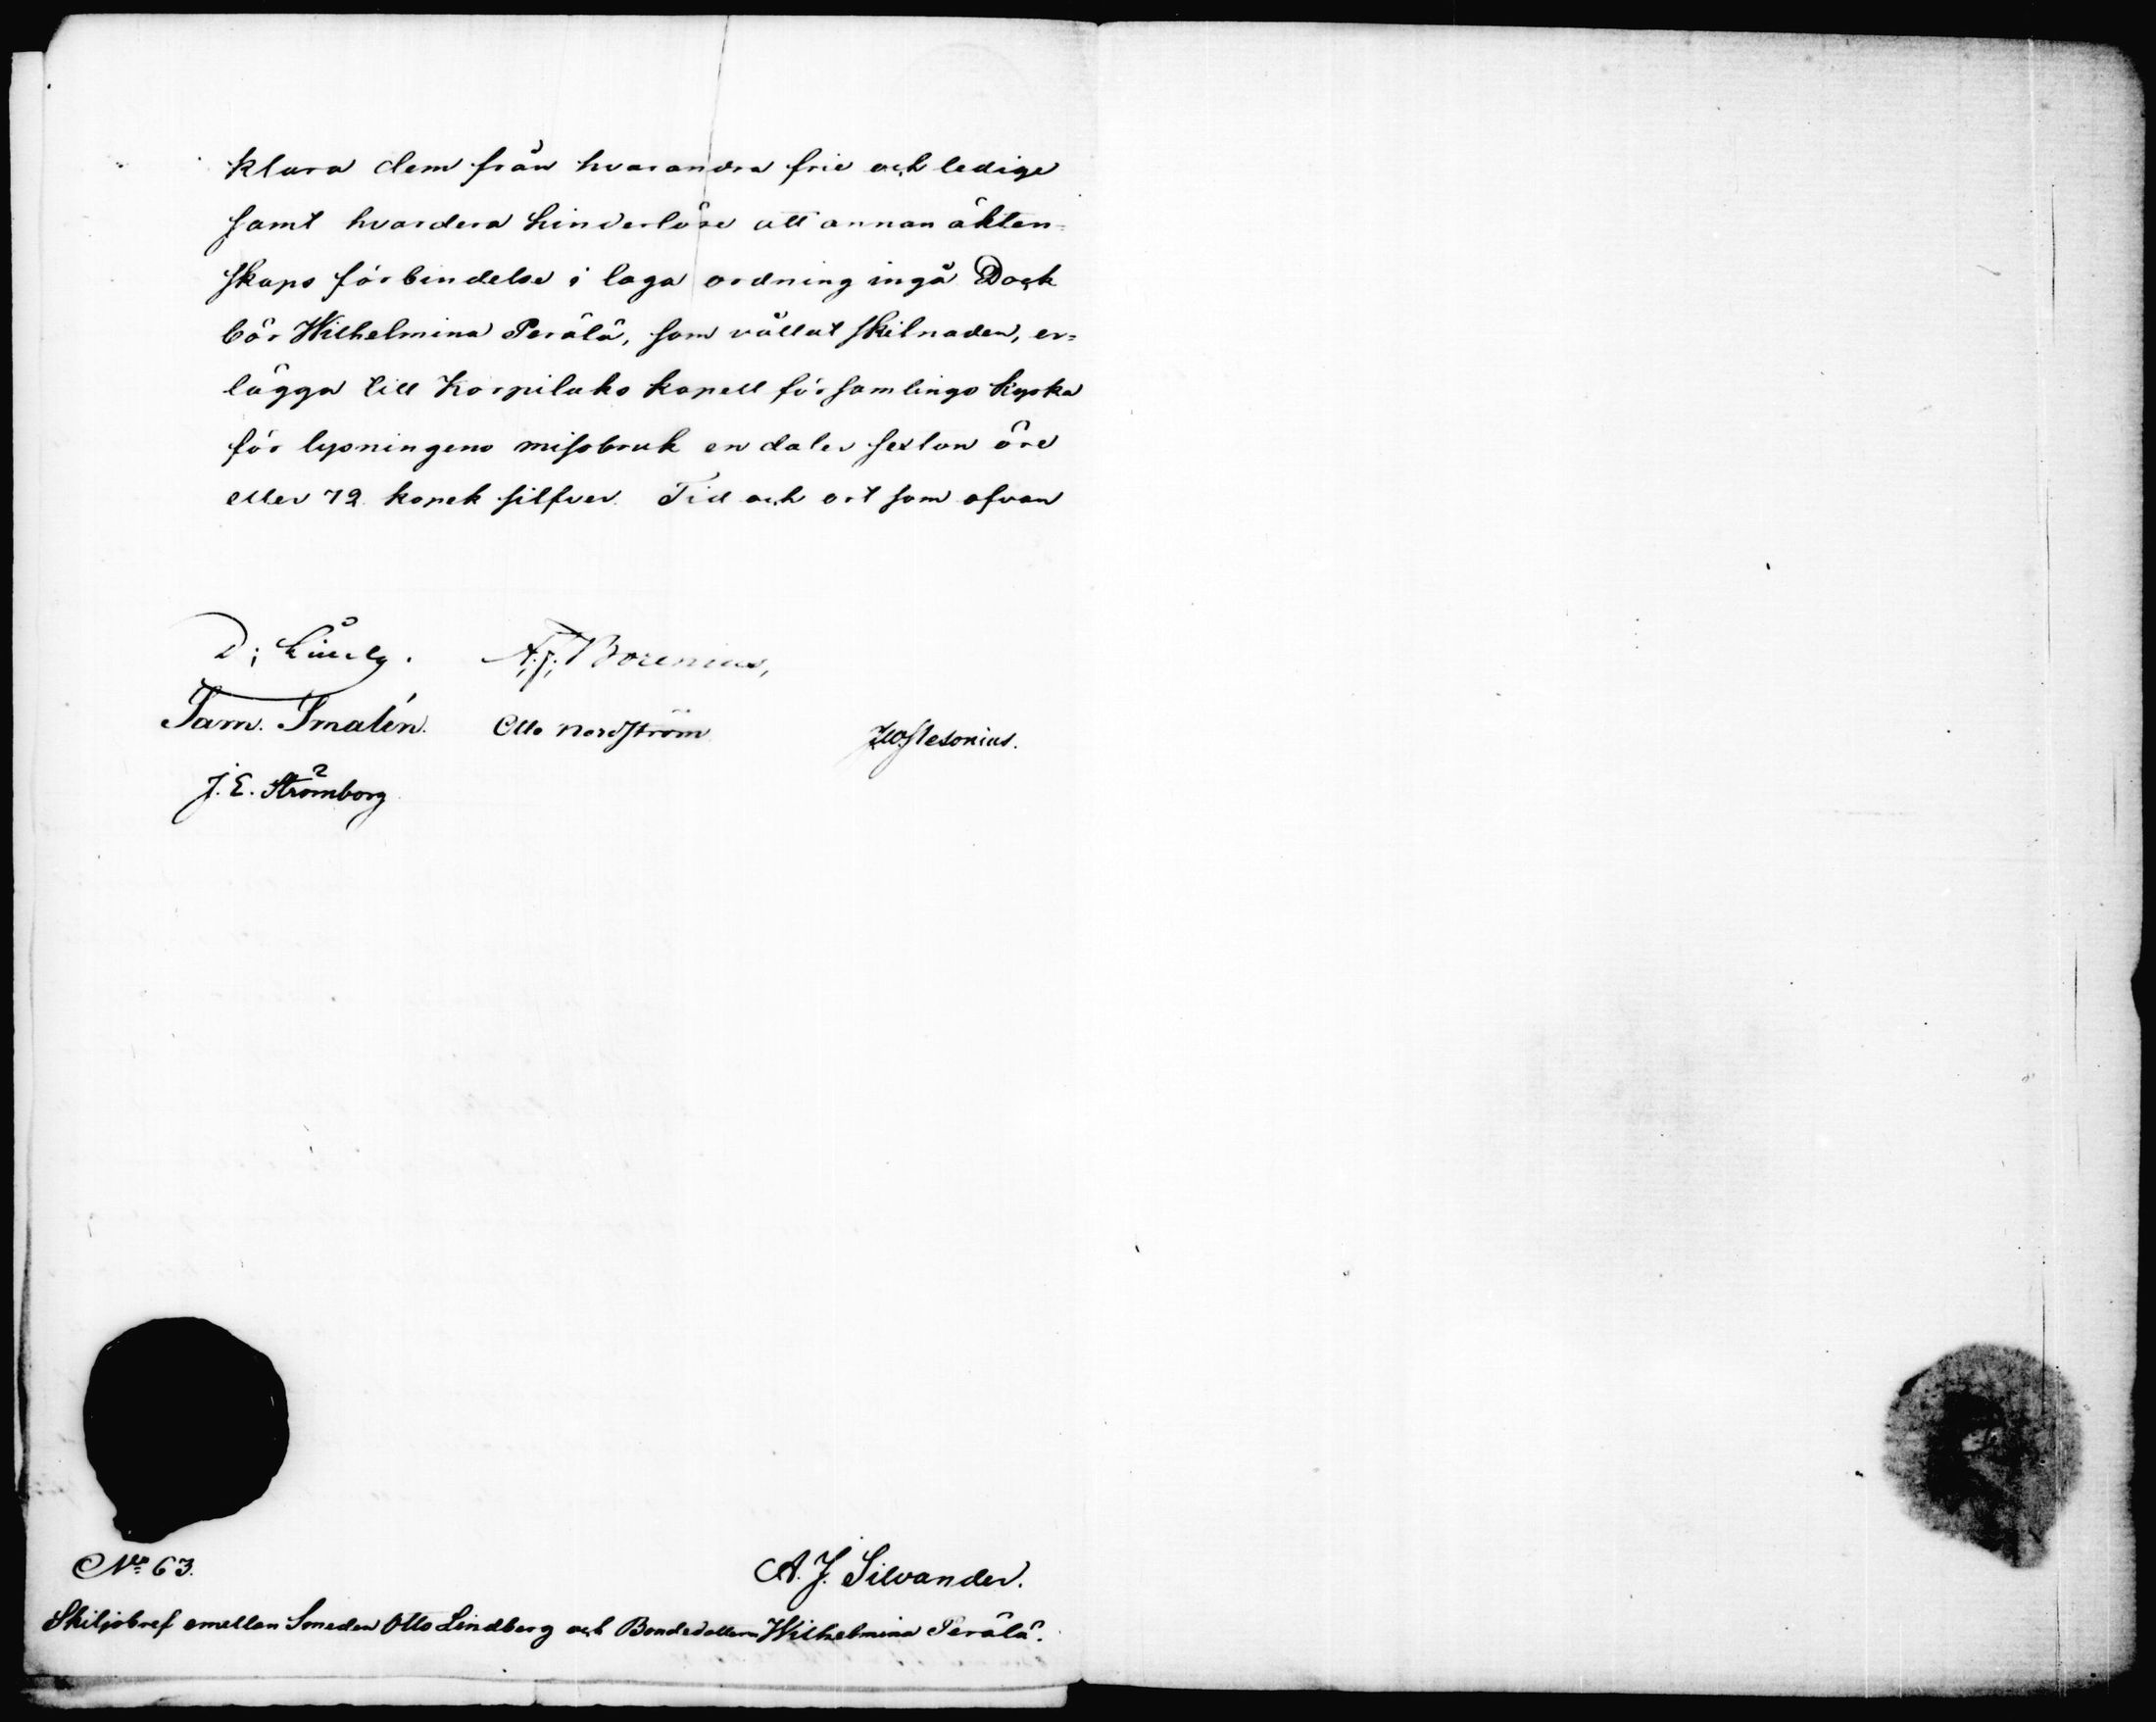 klara dem från hvarandra frie och ledige
samt hvardera hinderlöse att annan äkten=
skaps förbindelse i laga ordning ingå Dock
bör Wilhelmina Perälä, som vållat skilnaden, er=
lägga till Korpilaks kapell församlings kyrka
för lysningens missbruk en daler sexton öre
eller 72 kopek silfver. Tid och ort som ofvan
A. J. Borenius,
Sam. Smalén. Otto Nordström
J. E. Strömborg
No 63. A. J. Silvander.
Skiljobref emellan Smeden Otto Lindberg och Bondedottern Wilhelmina Perälä.